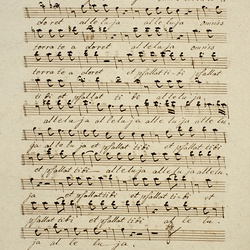 doret alleluja alleluja omnis
terra te adoret alleluja omnis
terra te a doret et psallat ti bi psallat
tibi et psallat ti bi alleluja
alleluja alleluja alle lu ja alle lu
ja alle lu ja et psallat tibi et psallat tibi
et psallat tibi alleluja alleluja allelu
ja et psallat tibi et
psallat tibi et psallat tibi al le lu
ja al le lu ja.